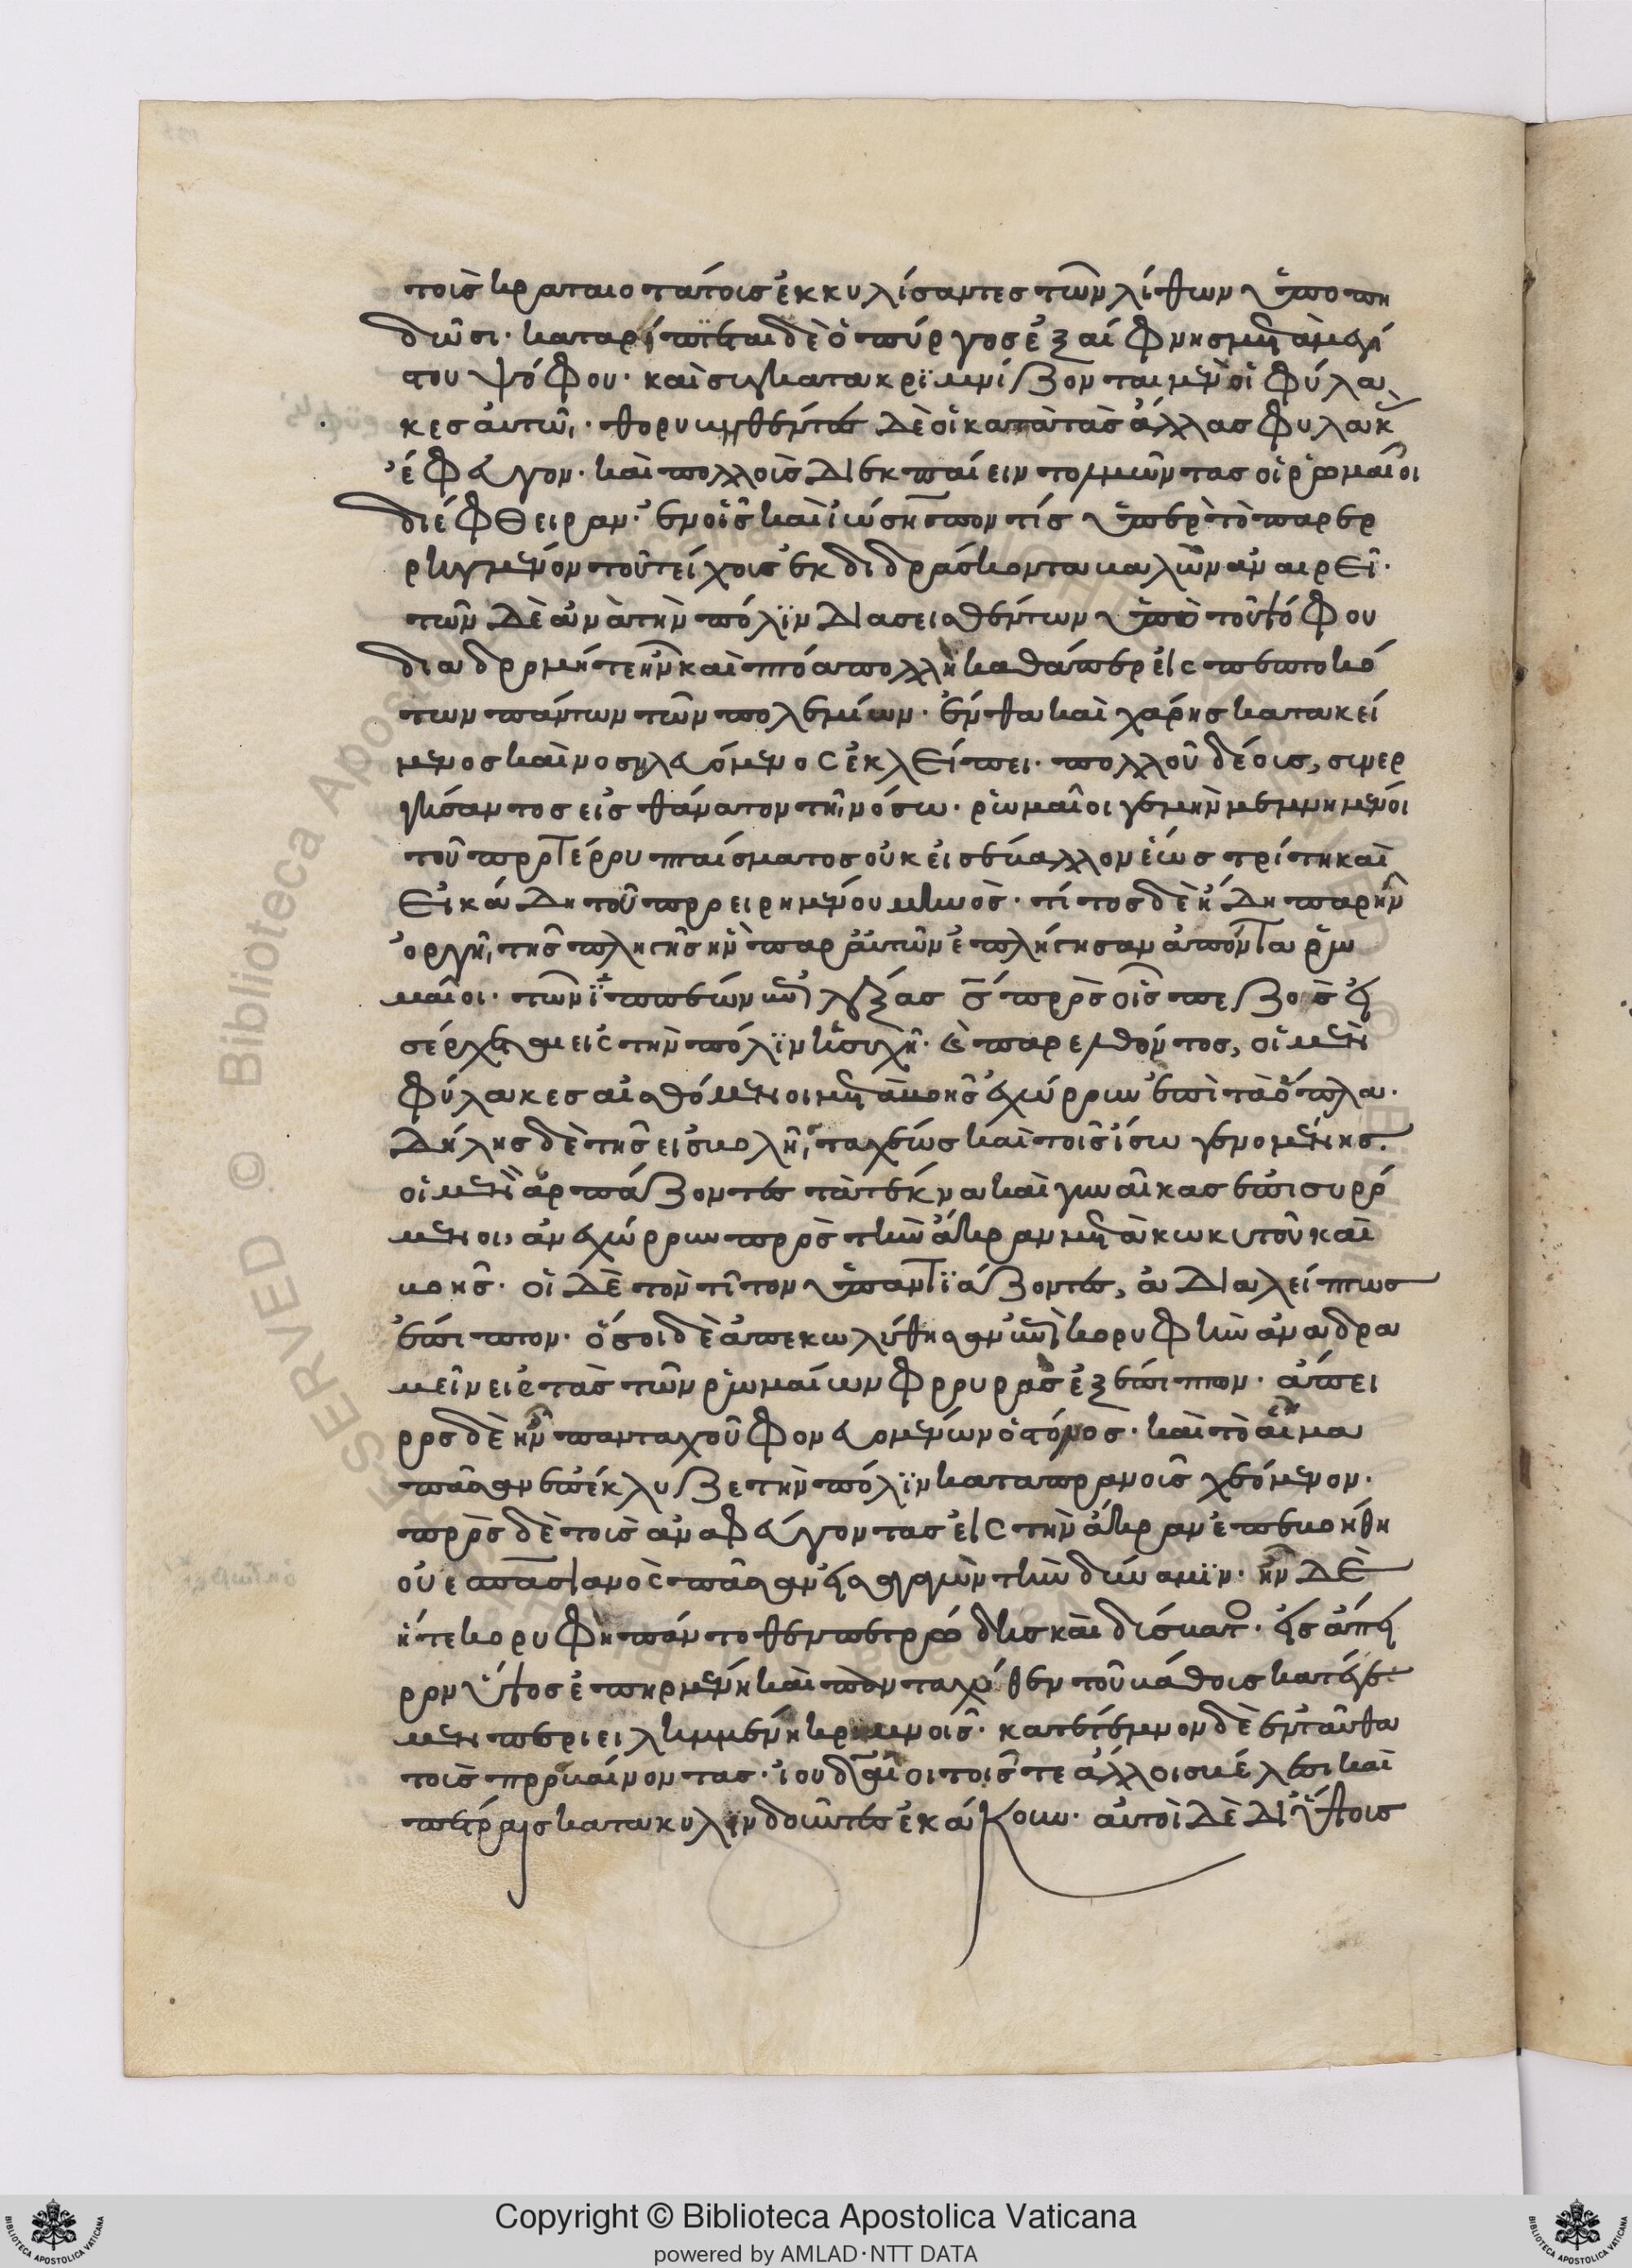 τοὺς κραταιοτάτους ἐκκυλίσαντες τῶν λίθων ὑποπη
δῶσι· καταρίπτεται δὲ ὁ πύργος ἐξαίφνης μετὰ μεγί
στου ψόφου· καὶ συγκατακρημνίζονται μὲν οἱ φύλα
κες αὐτῶ· θορυβηθέντες δὲ οἱ κατὰ τὰς ἄλλας φυλακὰς
ἔφευγον· καὶ πολλοὺς διεκπαίειν τολμῶντας οἱ ῥωμαῖοι
διέφθειραν· ἐν οἷς καὶ ἰώσηπόν τις ὑπὲρ τὸ παρερ
ρηγμένον τοῦ τείχους ἐκδιδράσκοντα βαλὼν ἀναιρεῖ·
τῶν δὲ ἀνὰ τὴν πόλιν διασεισθέντων ὑπὸ τοῦ ψόφου
διαδρομή τε ἦν καὶ πτόα πολλὴ καθάπερ εἰσπεπτωκό
των πάντων τῶν πολεμίων· ἔνθα καὶ χάρης κατακεί
μενος καὶ νοσηλευόμενος ἐκλείπει· πολλοῦ δέους, συνερ
γήσαντος εἰς θάνατον τῇ νόσω· ῥωμαῖοι γε μὴν μεμνημένοι
τοῦ προτέρου πταίσματος οὐκ εἰσέβαλλον ἕως τρίτη καὶ
εἰκάδη τοῦ προειρημένου μηνός· τίτος δὲ ἤδη παρῆν
ὀργῇ τῆς πληγῆς ἣν παρ' αὐτὸν ἐπλήγησαν ἀπόντα ῥω
μαῖοι· τῶν ἱππέων ἐπιλέξας σ πρὸς οἷς πεζοὺς
εἰσέρχεται εἰς τὴν πόλιν ἡσυχῆ· καὶ παρελθόντος, οἱ μὲν
φύλακες αἰσθόμενοι μετὰ βοῆς ἐχώρουν ἐπὶ τὰ ὅπλα·
δήλης δὲ τῆς εἰσβολῆς ταχέως καὶ τοῖς εἴσω γενομένης.
οἱ μὲν ἁρπάζοντες τὰ τέκνα καὶ γυναῖκας ἐπισυρό
μενοι, ἀνεχώρουν πρὸς τὴν ἄκραν μετὰ κωκυτοῦ καὶ
βοῆς· οἱ δὲ τὸν τίτον ὑπαντιάζοντες, ἀδιαλείπτως
ἔπιπτον· ὅσοι δὲ ἀπεκωλύθησαν ἐπὶ τὴν κορυφὴν ἀναδρα
μεῖν εἰς τὰς τῶν ῥωμαίων φρουρὰς ἐξέπιπτον· ἄπει
ρος δὲ ἦν πανταχοῦ φονευομένων ὁ στόνος· καὶ τὸ αἷμα
πᾶσαν ἐπέκλυζε τὴν πόλιν κατὰ πρανοῦς χεόμενον·
πρὸς δὲ τοὺς ἀναφεύγοντας εἰς τὴν ἄκραν ἐπεβοήθη
οὐεσπασιανὸς πᾶσαν εἰσαγαγὼν τὴν δύναμιν· ἦν δὲ
ἥ τε κορυφὴ πάντοθεν πετρώδης καὶ δύσβατος· εἰς ἄπει
ρον ὕψος ἐπηρμένη καὶ πανταχόθεν τοῦ βάθους κατέγε
μεν περιειλημμένη κρημνοῖς· κατέτεμνον δὲ ἐνταῦθα
τοὺς προβαίνοντας· ἰουδαῖοι τοῖς τε ἄλλοις βέλεσι καὶ
πέτρας κατακυλινδοῦντες ἐκάκουν· αὐτοὶ δὲ δι' ὕψους
Copyright © Biblioteca Apostolica Vaticana
powered by AMLAD·NTT DATA